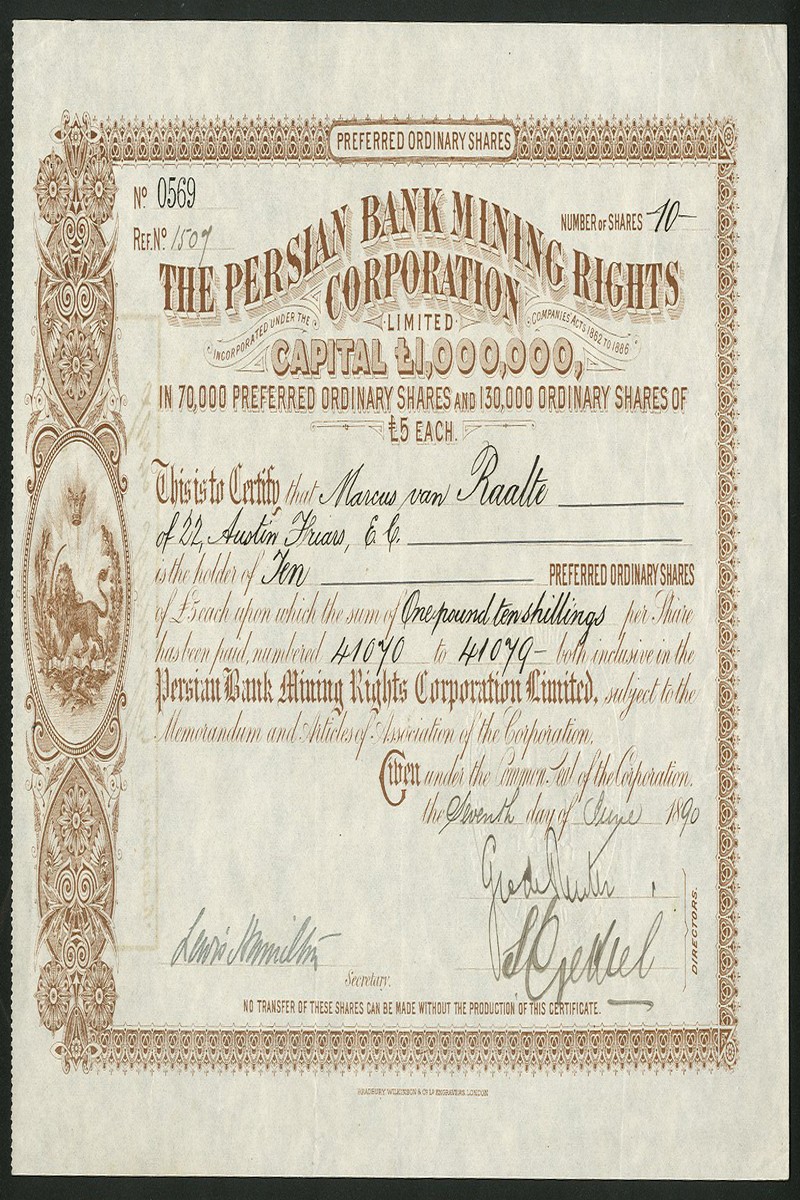 PREFERRED ORDINARY SHARES
No. 0569
NUMBER OF SHARES 10
REF. No. 1509
THE PERSIAN BANK MINING RIGHTS
CORPORATION
LIMITED
INCORPORATED UNDER THE COMPANIES' ACTS 1862 TO 1886
CAPITAL £1,000,000,
IN 70,000 PREFERRED ORDINARY SHARES AND 130,000 ORDINARY SHARES OF
£5 EACH.
This is to Certify that Marcus van Raalte
of 22, Austin Friars, E.C.
is the holder of Ten PREFERRED ORDINARY SHARES
of £5 each upon which the sum of One pound ten shillings per Share
has been paid, numbered 41070 to 41079 both inclusive in the
Persian Bank Mining Rights Corporation Limited, subject to the
Memorandum and Articles of Association of the Corporation.
Given under the Common Seal of the Corporation.
the Seventh day of June 1890
DIRECTORS.
Lewis Hamilton
Secretary.
NO TRANSFER OF THESE SHARES CAN BE MADE WITHOUT THE PRODUCTION OF THIS CERTIFICATE.
BRADBURY, WILKINSON & Co. Ld. ENGRAVERS, LONDON